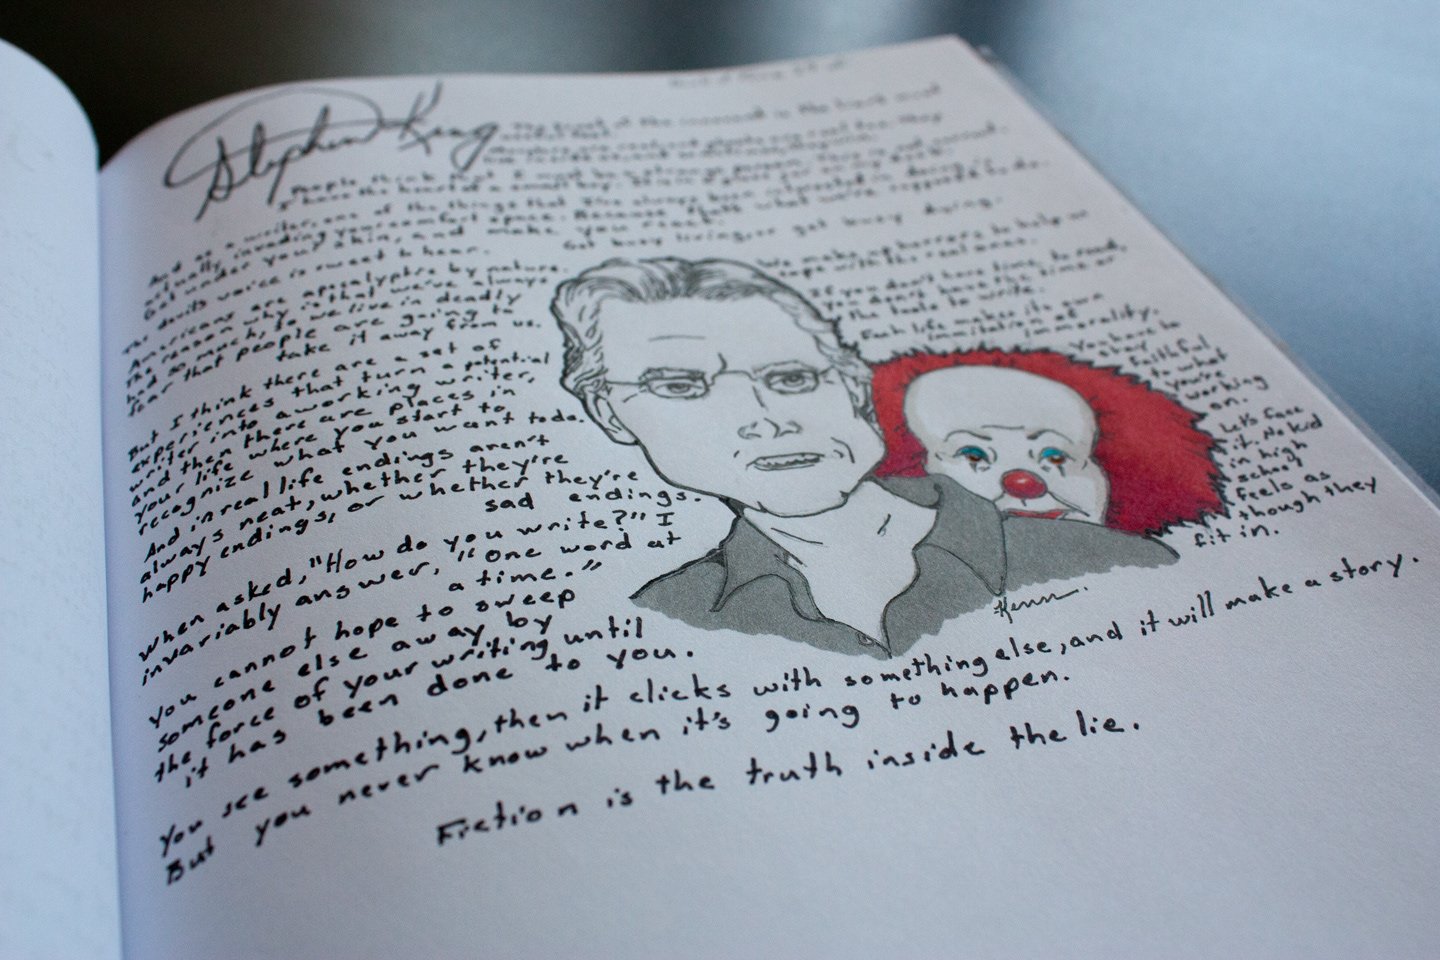 Stephen King
People think that I must be a strange person. This is not correct.
I have the heart of a small boy. It is in a glass jar on my desk.
And as a writer, one of the things that I've always been interested in doing is
actually invading your comfort space. Because that's what we're supposed to do.
Get under your skin, and make you react.
Get busy living, or get busy dying.
The devil's voice is sweet to hear.
Americans are apocalyptic by nature.
The reason why is that we've always
had so much, so we live in deadly
fear that people are going to
take it away from us.
But I think there are a set of
experiences that turn a potential
writer into a working writer,
and then there are places in
your life where you start to
recognize what you want to do.
And in real life endings aren't
always neat, whether they're
happy endings, or whether they're
sad endings.
When asked, "How do you write?" I
invariably answer, "one word at
a time."
You cannot hope to sweep
someone else away by
the force of your writing until
it has been done to you.
We make up horrors to help us
cope with the real ones.
If you don't have time to read,
you don't have the time or
the tools to write.
Each life makes its own
immitation of
immorality.
You have to
stay
faithful
to what
you're
working
on.
Let's face
it. No kid
in high
school
feels as
though they
fit in.
Kenn
You see something, then it clicks with something else, and it will make a story.
But you never know when it's going to happen.
Fiction is the truth inside the lie.